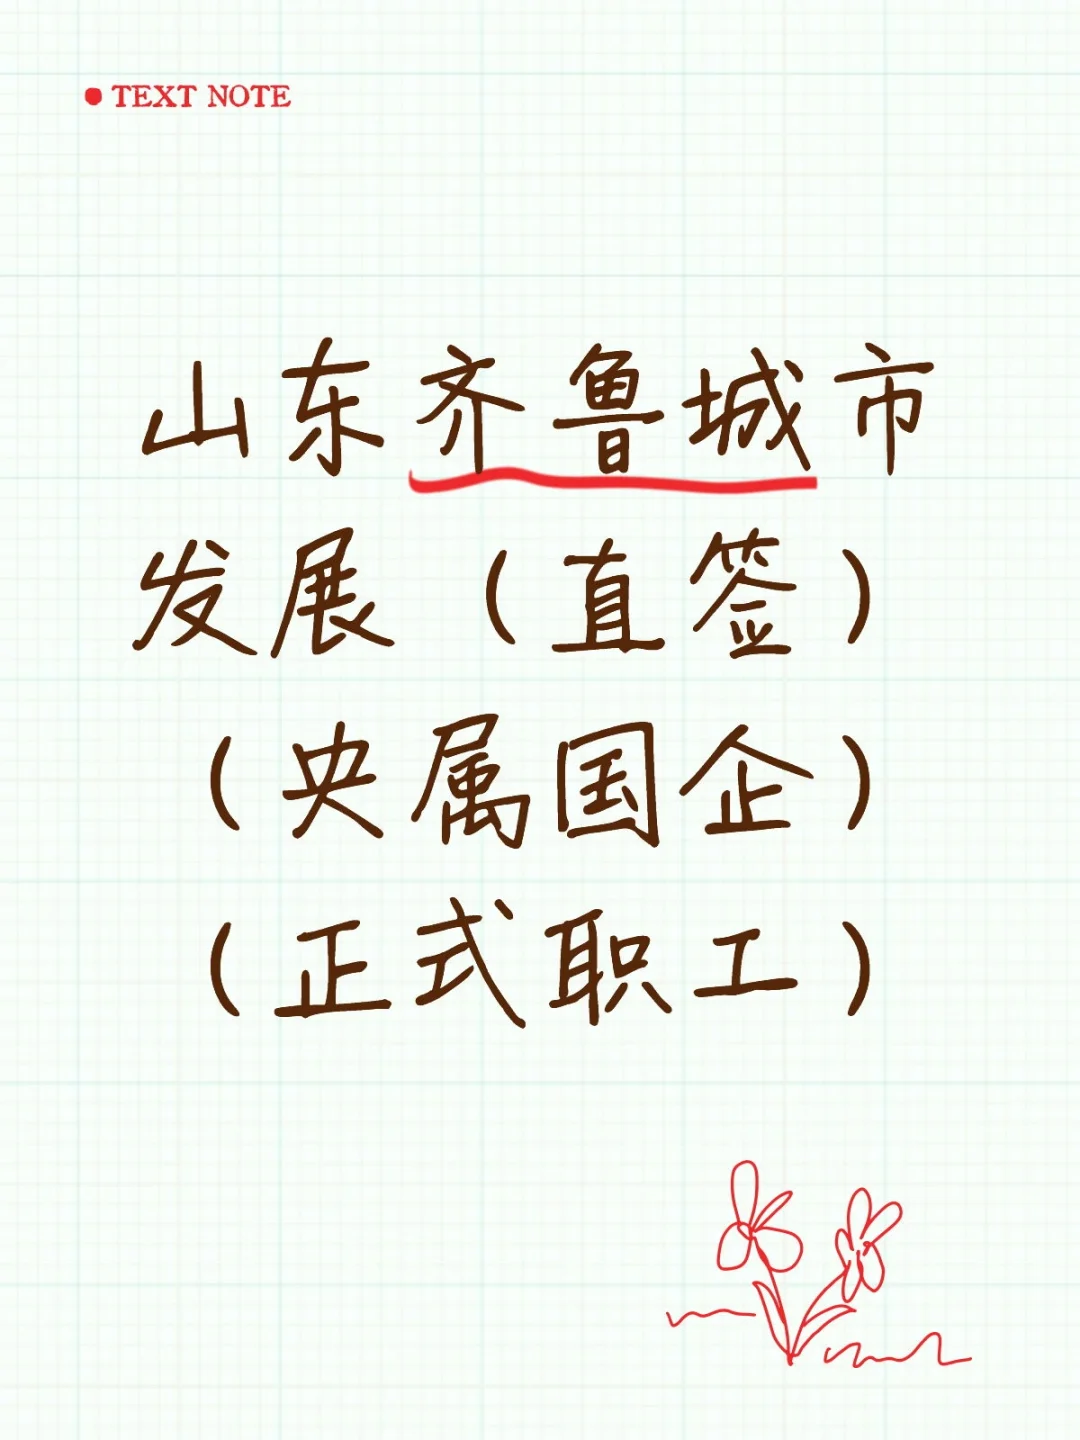 TEXT NOTE
山东齐鲁城市
发展（直签）
（央属国企）
（正式职工）